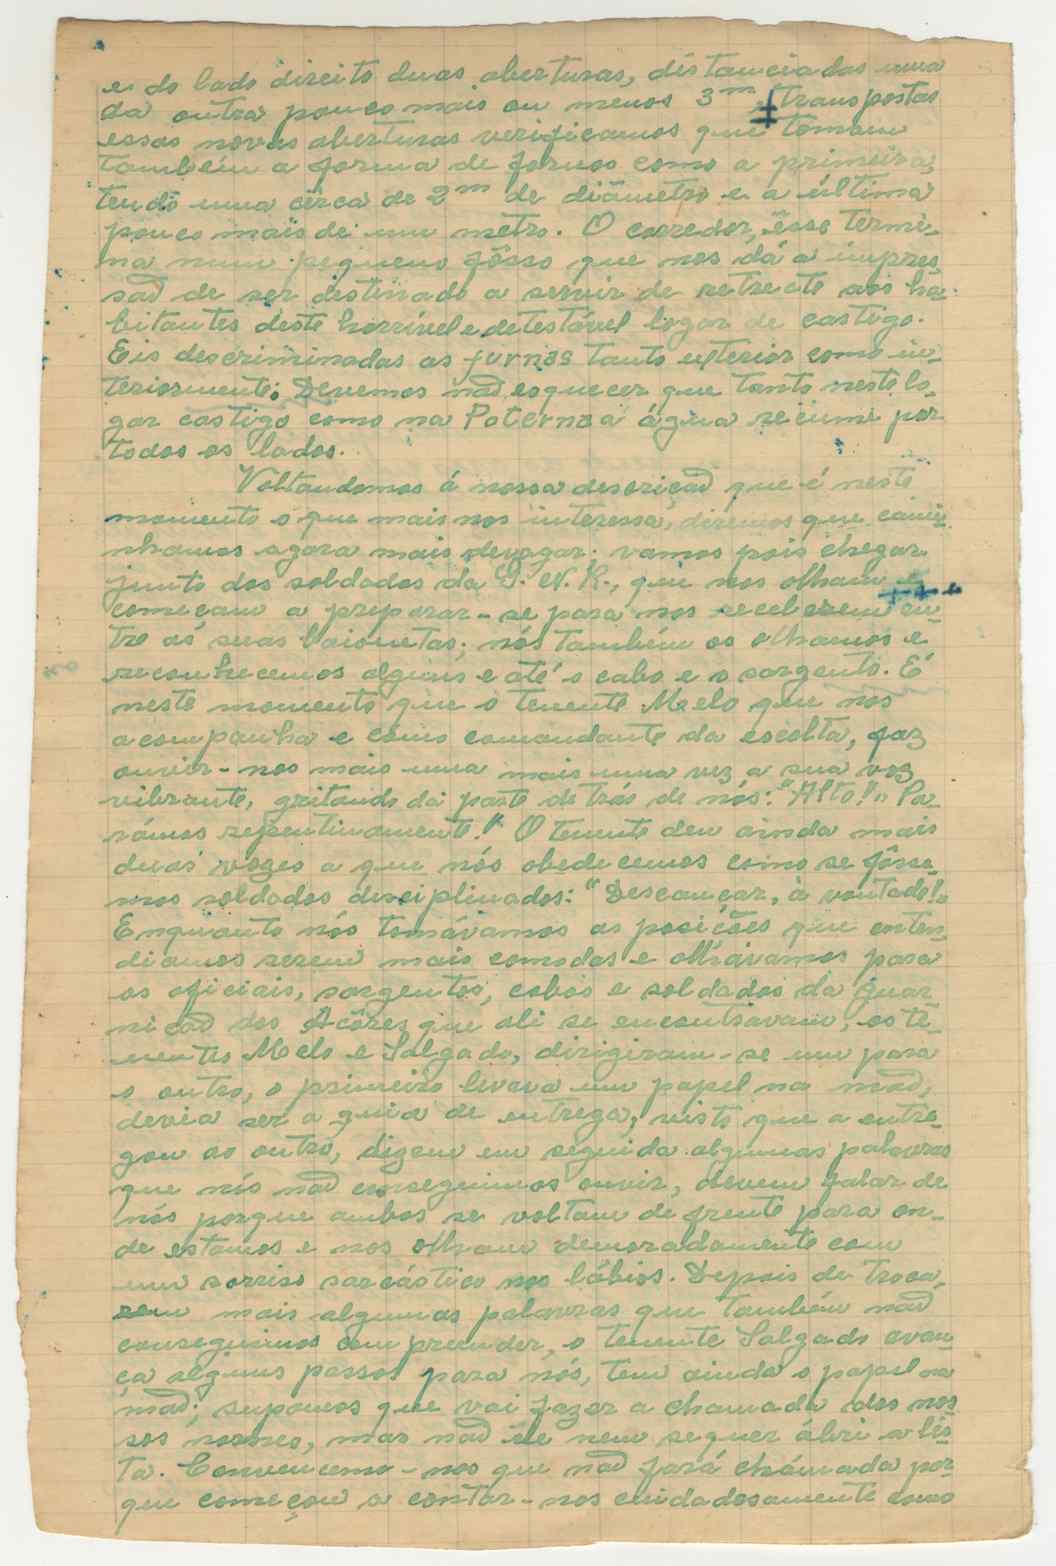 e do lado direito duas aberturas, distanciadas uma
da outra pouco mais ou menos 3m, transpostas
essas novas aberturas verificamos que tomam
também a forma de fornos como a primeira,
tendo uma cêrca de 2m de diâmetro e a última
pouco mais de um metro. O corredor, êsse termi-
na num pequeno fôsso que nos dá a impres-
sad de ser destinado a servir de retrete aos ha-
bitantes deste horrível e detestável logar de castigo.
Eis descriminadas as furnas tanto exterior como in-
teriormente; Devemos nad esquecer que tanto neste lo-
gar castigo como na Poterna a água reçume por
todos os lados.
Voltandomos á nossa descriçad que é neste
momento o que mais nos interessa, diremos que cami-
nhamos agora mais devagar; vamos pois chegar
junto dos soldados da G. N. R., que nos olham e
começam a preparar-se para nos receberem en-
tre as suas baionetas; nós também os olhamos e
reconhecemos alguns e até o cabo e o sargento. É
neste momento que o tenente Melo que nos
acompanha e como comandante da escolta, faz
ouvir-nos mais uma mais uma vez a sua voz
vibrante, gritando da parte de trás de nós: "Alto!" Pa-
rámos repentinamente!" O tenente deu ainda mais
duas vozes a que nós obedecemos como se fôsse-
mos soldados disciplinados: "Descançar, à vontade!"
Enquanto nós tomávamos as posições que enten-
diamos serem mais comodas e olhávamos para
os oficiais, sargentos, cabos e soldados da guar-
niçad dos Açôres que ali se encontravam, os te-
nentes Melo e Salgado, dirigiram-se um para
o outro, o primeiro levava um papel na mad,
devia ser a guia de entrega, visto que a entre-
gou ao outro, dizem em seguida algumas palavras
que nós nad conseguimos ouvir, devem falar de
nós porque ambos se voltam de frente para on-
de estamos e nos olham demoradamente com
um sorriso sarcástico nos lábios. Depois de troca-
rem mais algumas palavras que também nad
conseguimos compreender, o tenente Salgado avan-
ça alguns passos para nós, tem ainda o papel na
mad; supomos que vai fazer a chamada dos nos-
sos nomes, mas nad êle nem sequer ábri a lis-
ta. Convencemo-nos que nad fará chámada por-
que começou a contar-nos cuidadosamente como